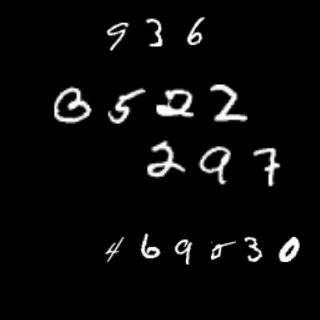 936
0522
297
469530